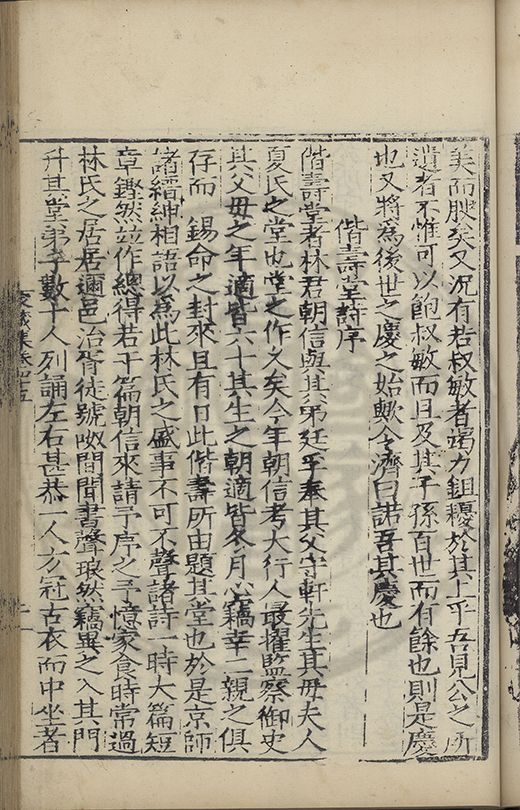 美而腴矣又况有若叔敏者竭力鉏耰於其上乎吾見公之所
遺者不惟可以飽叔敏而且及其子孫百世而有餘也則是慶
也又將為後世之慶之始歟今濟曰諾吾其慶也
偕壽堂詩序
偕壽堂者林君朝信與其弟廷孚奉其父守軒先生其毋夫人
夏氏之堂也堂之作久矣今年朝信考大行人最擢監察御史
其父毋之年適皆六十其生之朝適皆冬月竊幸二親之俱
存而 錫命之封來且有日此偕壽所由題其堂也於是京師
諸縉紳相語以為此林氏之盛事不可不聲諸詩一時大篇短
章鏗然並作總得若干篇朝信來請予序之予憶家食時常過
林氏之居居邇邑治胥徒號呶間聞書聲琅然竊異之入其門
升其堂弟子數十人列誦左右甚恭一人方冠古衣而中坐者